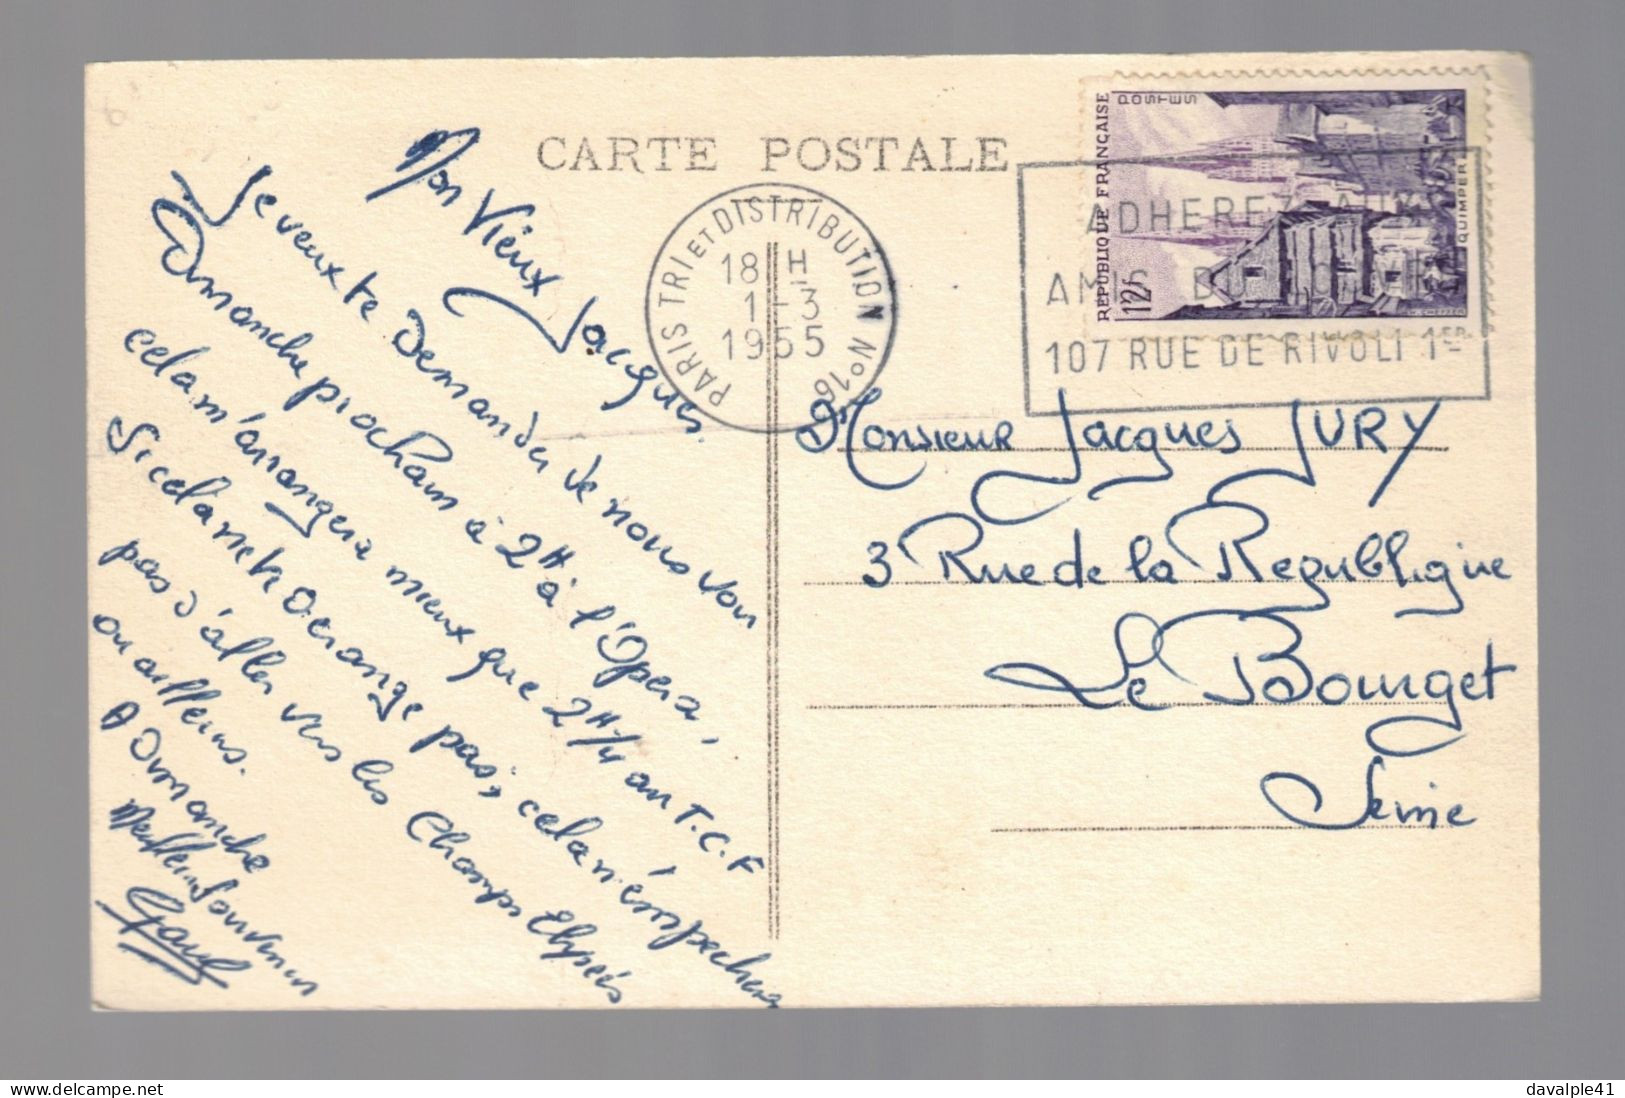 CARTE POSTALE
Mon Vieux Jacques.
Je veux te Demander de nous voir
Dimanche prochain à 2H à l'Opera,
cela m'arrangera mieux que 2H1/4 au T.C.F
Si cela ne te Derange pas; cela n'empechera
pas d'aller vers les Champs Elysées
ou ailleurs.
A Dimanche
Meilleur Souvenir
Paul
PARIS TRI ET DISTRIBUTION N°16
18 H
1-3
1955
ADHEREZ AUX
AMIS DU
107 RUE DE RIVOLI 1ER
REPUBLIQUE FRANÇAISE
POSTES
12F
QUIMPER
Monsieur Jacques JURY
3 Rue de la Republique
Le Bourget
Seine
delcampe.net
davalple41